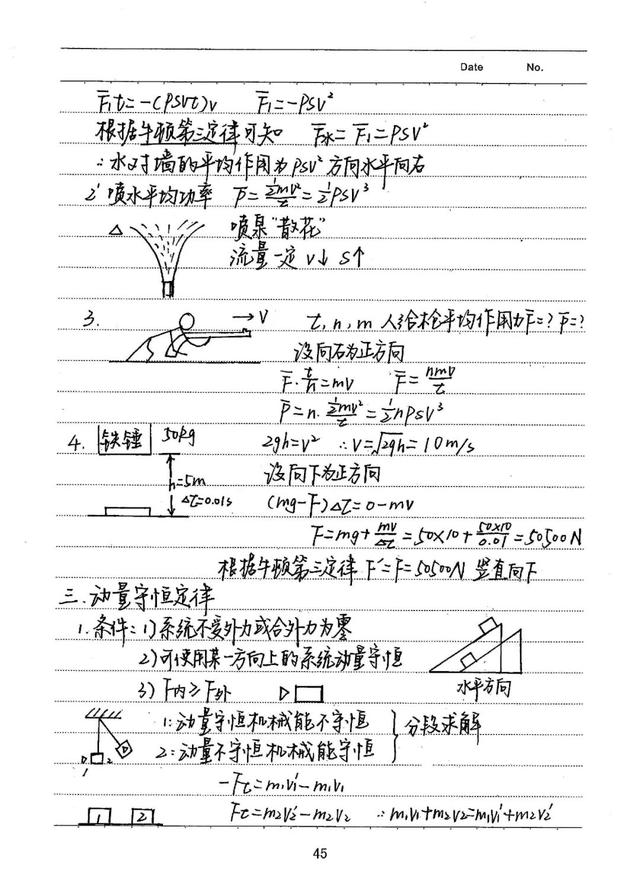 Date No.
F̄₁t=-(ρSvt)v F̄₁=-ρSv²
根据牛顿第三定律可知 F̄水=F̄₁=ρSv²
∴水对墙的平均作用力为ρSv²方向水平向右
2'喷水平均功率 P̄=½mv²/t=½ρSv³
△ 喷泉"散花"
流量一定 v↓ S↑
3. →V t,n,m 人给枪平均作用力F̄=? P̄=?
设向右为正方向
F̄·t/n=mv F̄=nmv/t
P̄=n·½mv²/t=½nρSv³
4. 铁锤 50kg 2gh=v² ∴v=√2gh=10m/s
h=5m 设向下为正方向
Δt=0.01s (mg-F)Δt=0-mv
F=mg+mv/Δt=50×10+50×10/0.01=50500N
根据牛顿第三定律F'=F=50500N 竖直向下
三.动量守恒定律
1.条件:1)系统不受外力或合外力为零
2)可使用某一方向上的系统动量守恒
3)F内≫F外 水平方向
1:动量守恒机械能不守恒
2:动量不守恒机械能守恒 分段求解
1 2
-Ft=m₁v₁'-m₁v₁
1 2 Ft=m₂v₂'-m₂v₂ ∴m₁v₁+m₂v₂=m₁v₁'+m₂v₂'
45